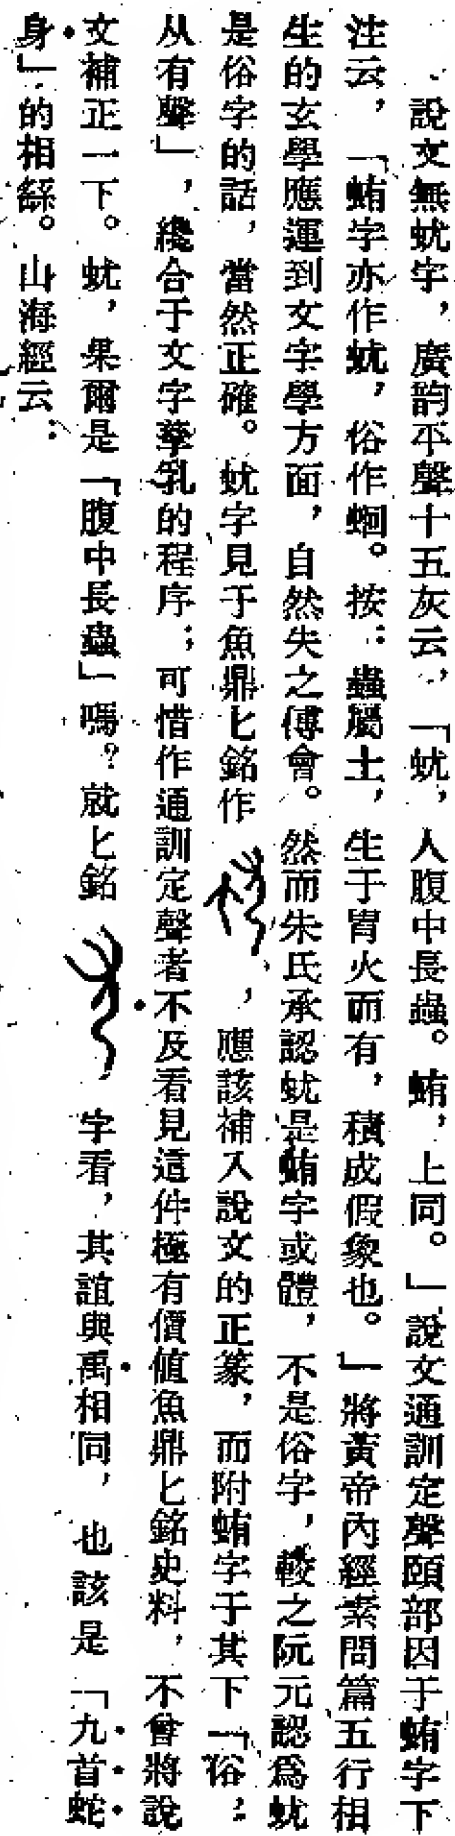 說文無蚘字，廣韵平聲十五灰云，「蚘，人腹中長蟲。蛕，上同。」說文通訓定聲頤部因于蛕字下
注云，「蛕字亦作蚘，俗作蛔。按：蟲屬土，生于胃火而有，積成假象也。」將黃帝內經素問篇五行相
生的玄學應運到文字學方面，自然失之傅會。然而朱氏承認蚘是蛕字或體，不是俗字，較之阮元認爲蚘
是俗字的話，當然正確。蚘字見于魚鼎匕銘作，應該補入說文的正篆，而附蛕字于其下「俗：
从有聲」，纔合于文字孳乳的程序；可惜作通訓定聲者不及看見這件極有價值魚鼎匕銘史料，不曾將說
文補正一下。蚘，果爾是「腹中長蟲」嗎？就匕銘，字看，其誼與禹相同，也該是「九首蛇
身」的相繇。山海經云：